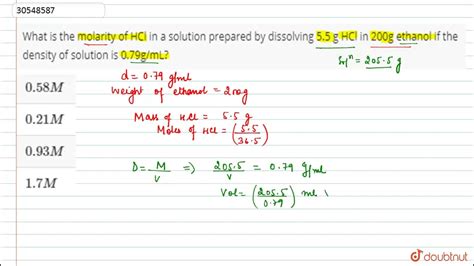 30548587
What is the molarity of HCl in a solution prepared by dissolving 5.5 g HCl in 200g ethanol if the
density of solution is 0.79g/mL?
Solⁿ = 205.5 g
d = 0.79 g/ml
0.58M
Weight of ethanol = 200g
0.21M
Mass of HCl = 5.5 g
Moles of HCl = (5.5/36.5)
0.93M
D = M/V ⇒ 205.5/V = 0.79 g/ml
1.7M
Vol = (205.5/0.79) ml
doubtnut